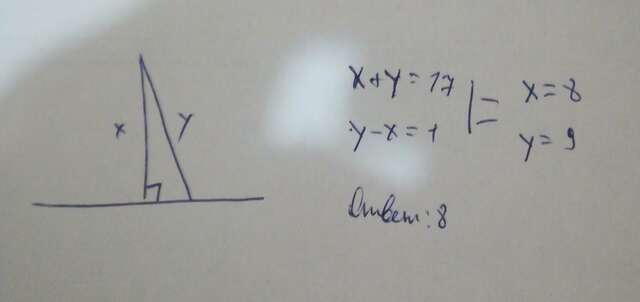 x y
x+y=17
y-x=1
|= x=8
y=9
Ответ: 8